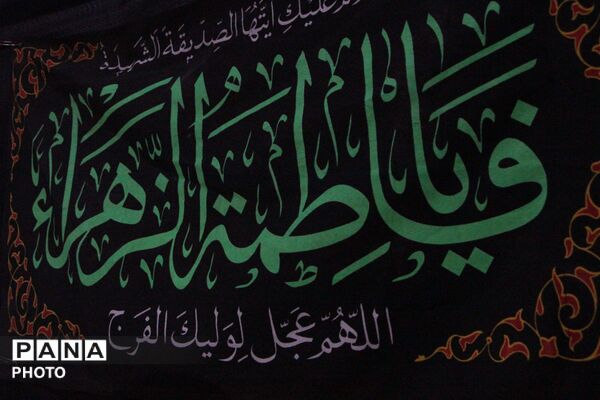 عليكِ ايتها الصديقة الشهيدة
يا فاطمة الزهراء
اللهمّ عجّل لوليك الفرج
PANA
PHOTO